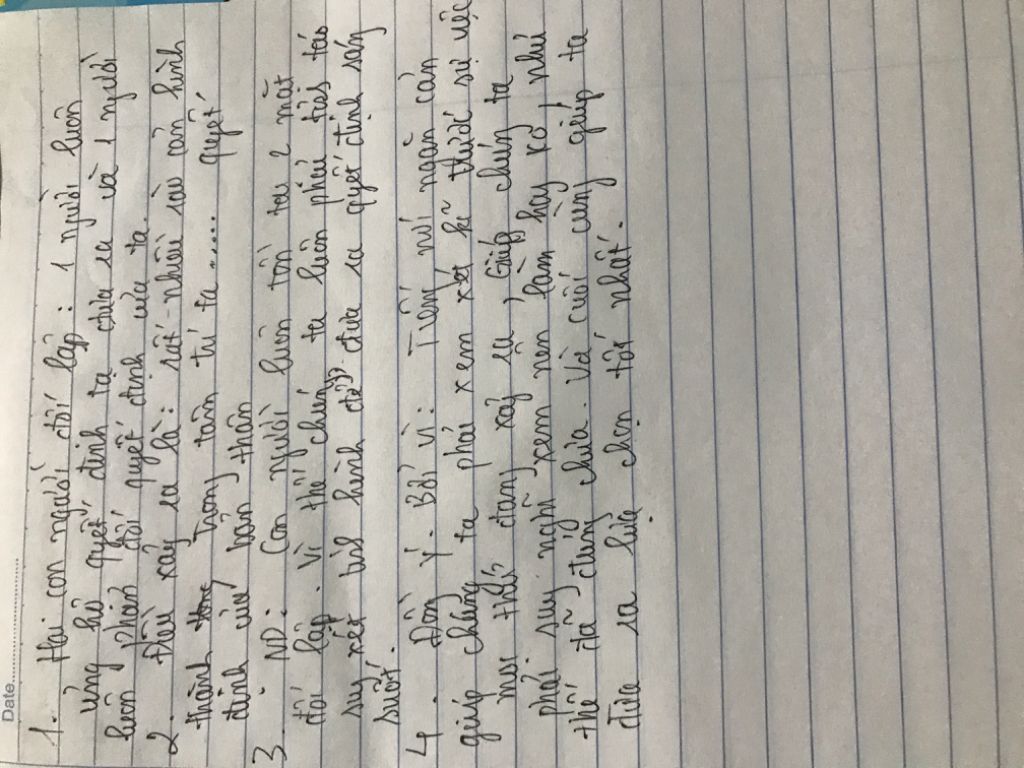 Date
1. Hai con người đối lập : 1 người luôn
ủng hộ quyết định ta đưa ra và 1 người
luôn phản đối quyết định của ta.
2. Điều xảy ra là : rất nhiều rào cản hình
thành trong tâm trí ta..... quyết
định của bản thân
3. ND: Con người luôn tồn tại 2 mặt
đối lập. Vì thế chúng ta luôn phải
suy xét hình để đưa ra quyết định sáng
suốt.
4. Đồng ý. Bởi vì: Tiếng nói ngăn cản
giúp chúng ta phải xem xét kĩ trước sự việc
mọi thứ đang xảy ra, Giúp chúng ta
phải suy nghĩ xem nên làm hay ko, như
thế đã đúng chưa. Và cuối cùng giúp ta
đưa ra lựa chọn tốt nhất.